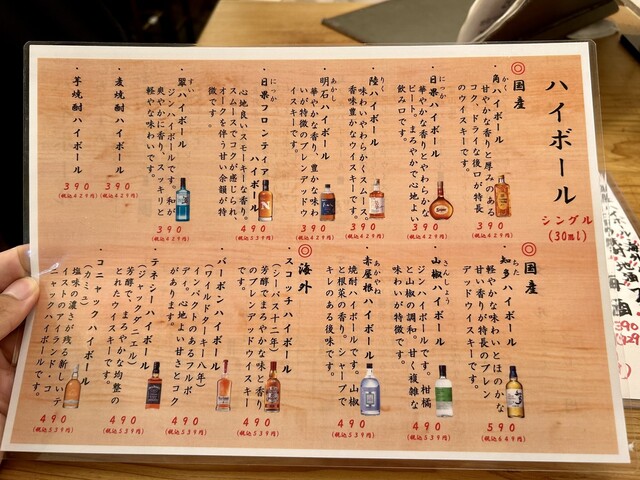 ハイボール
シングル
(30ml)
◎国産
・角ハイボール
かく
甘やかな香りと厚みのある
コク、ドライな後口が特長
のウイスキーです。
390
(税込429円)
・日果ハイボール
にっか
華やかな香りとやわらかな
ピート。まろやかで心地よい
飲み口です。
390
(税込429円)
・陸ハイボール
りく
味わいやわらかくスムース。
香味豊かなウイスキーです。
390
(税込429円)
・明石ハイボール
あかし
華やかな香り、豊かな味わ
いが特徴のブレンデッドウ
イスキーです。
390
(税込429円)
・日果フロンティア
にっか
ハイボール
心地良いスモーキーな香り、
スムースでコクが感じられ、
オークを伴う甘い余韻が特
徴です。
390
(税込429円)
・翠ハイボール
すい
ジンハイボールです。和が
爽やかに香り、スッキリと
軽やかな味わいです。
390
(税込429円)
・麦焼酎ハイボール
390
(税込429円)
・芋焼酎ハイボール
390
(税込429円)
◎国産
・知多ハイボール
ちた
軽やかな味わいとほのかな
甘い香りが特長のブレン
デッドウイスキーです。
590
(税込649円)
・山椒ハイボール
さんしょう
ジンハイボールです。柑橘
と山椒の調和。甘く複雑な
味わいが特徴です。
490
(税込539円)
・赤屋根ハイボール
あかやね
焼酎ハイボールです。山椒
と根菜の香り。シャープで
キレのある後味です。
490
(税込539円)
◎海外
・スコッチハイボール
(シーバス十二年)
芳醇でまろやかな味と香り
のブレンデッドウイスキー
です。
490
(税込539円)
・バーボンハイボール
(ワイルドターキー八年)
インパクトのあるフルボ
ディ。心地よい甘さとコク
があります。
490
(税込539円)
・テネシーハイボール
(ジャックダニエル)
芳醇で、まろやかな均整の
とれたウイスキーです。
490
(税込539円)
・コニャックハイボール
(カミュ)
塩味の濃さが残る新しいテ
イストのアイランド・コ
ニャックハイボールです。
490
(税込539円)